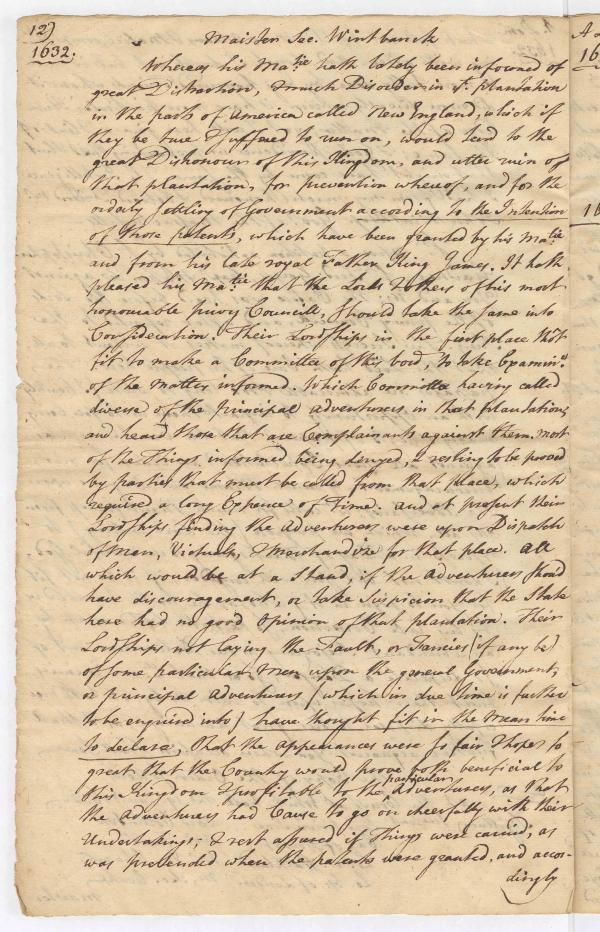 12)
1632.
Maister Sec. Wintbanck
Whereas his Ma:tie hath lately been informed of
great Distraction, & much Disorder in ye. plantation
in the parts of America called New England, which if
they be true & suffered to run on, would tend to the
great Dishonour of this Kingdom, and utter ruin of
that plantation, for prevention whereof, and for the
orderly settling of Government according to the Intention
of those patents, which have been granted by his Ma:tie
and from his late royal Father King James. It hath
pleased his Ma:tie that the Lords & others of his most
honourable privy Councill, should take the same into
Consideration. Their Lordships in the first place tho't
fit to make a Committee of this bord, to take Examin:n
of the matters informed. Which Committee having called
diverse of the principal adventurers in that plantation,
and heard those that are Complainants against them, most
of the Things informed being denyed, & resting to be proved
by parties that must be called from that place, which
required a long Expence of Time. and at present their
Lordships finding the adventurers were upon Dispatch
of Men, Victuals, & Merchandize for that place. all
which would be at a stand, if the adventurers should
have discouragement, or take Suspicion that the State
here had no good Opinion of that plantation. Their
Lordships not laying the Fault, or Fancies (if any be)
of some particular Men upon the general Government,
or principal adventurers (which in due time is further
to be enquired into) have thought fit in the mean time
to declare, that the appearances were so fair & hopes so
great that the Country would prove both beneficial to
this Kingdom & profitable to the particular Adventurers, as that
the adventurers had Cause to go on cheerfully with their
Undertakings; & rest assured if Things were carried, as
was pretended when the patents were granted, and accor-
dingly